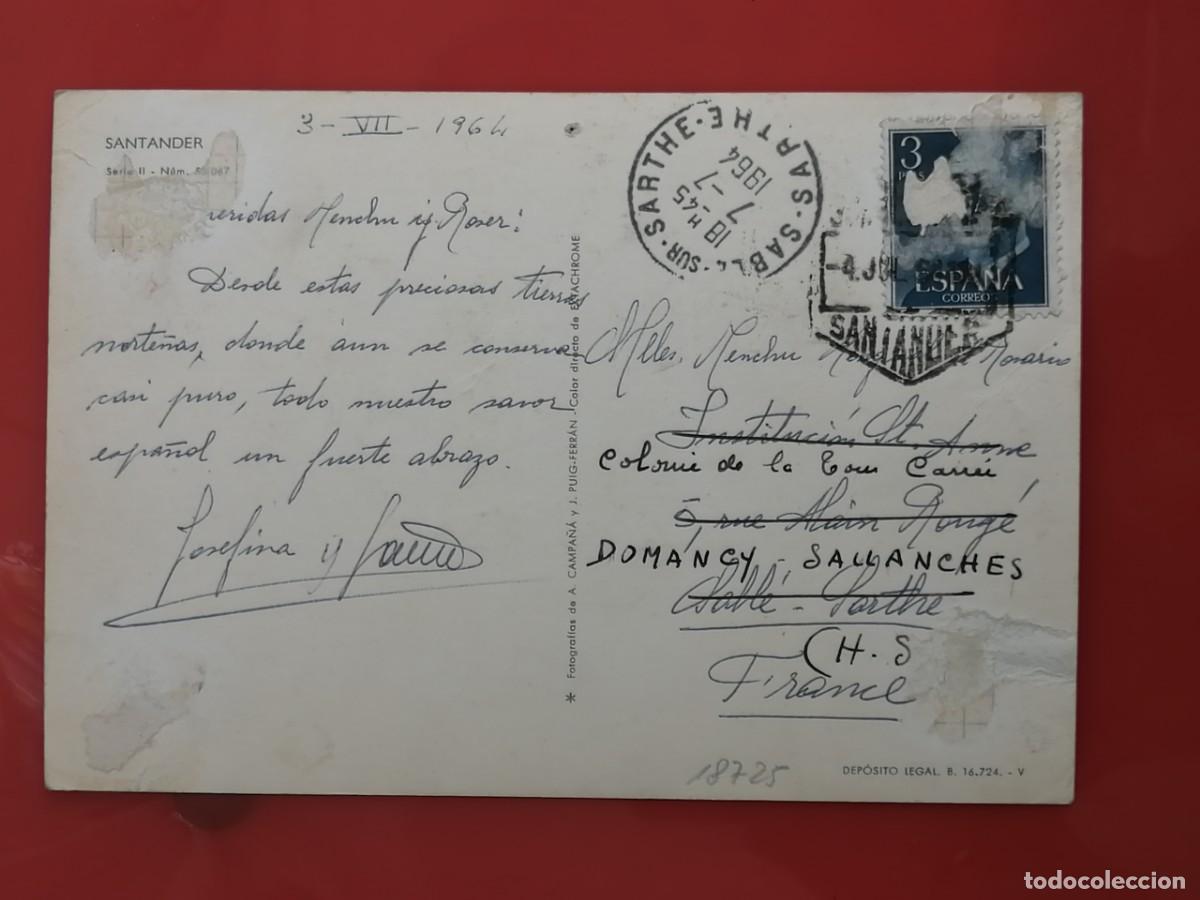 SANTANDER
Serie II - Núm.
3 - VII - 1964
Menchu y Roser:
Desde estas preciosas tierras
norteñas, donde áun se conserva
casi puro, todo nuestro savor
español un fuerte abrazo.
Josefina y
* Fotografías de A. CAMPAÑÁ y J. PUIG-FERRÁN - Color directo de EKTACHROME
SUR-SARTHE · SARTHE
18 H -45
7 -7
1964
3
ESPAÑA
CORREO
-4.JUL
SANTANDER
Melles. Menchu Rosario
Institución St. Anne
Colonie de la Tour Carrée
5, rue Alain Rougé
DOMANCY - SALLANCHES
Sablé - Sarthe
(H.S
France
18725
DEPÓSITO LEGAL. B. 16.724. - V
todocoleccion